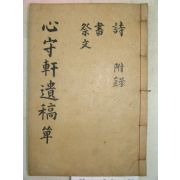 心守軒遺稿單
詩 附錄
書
祭文